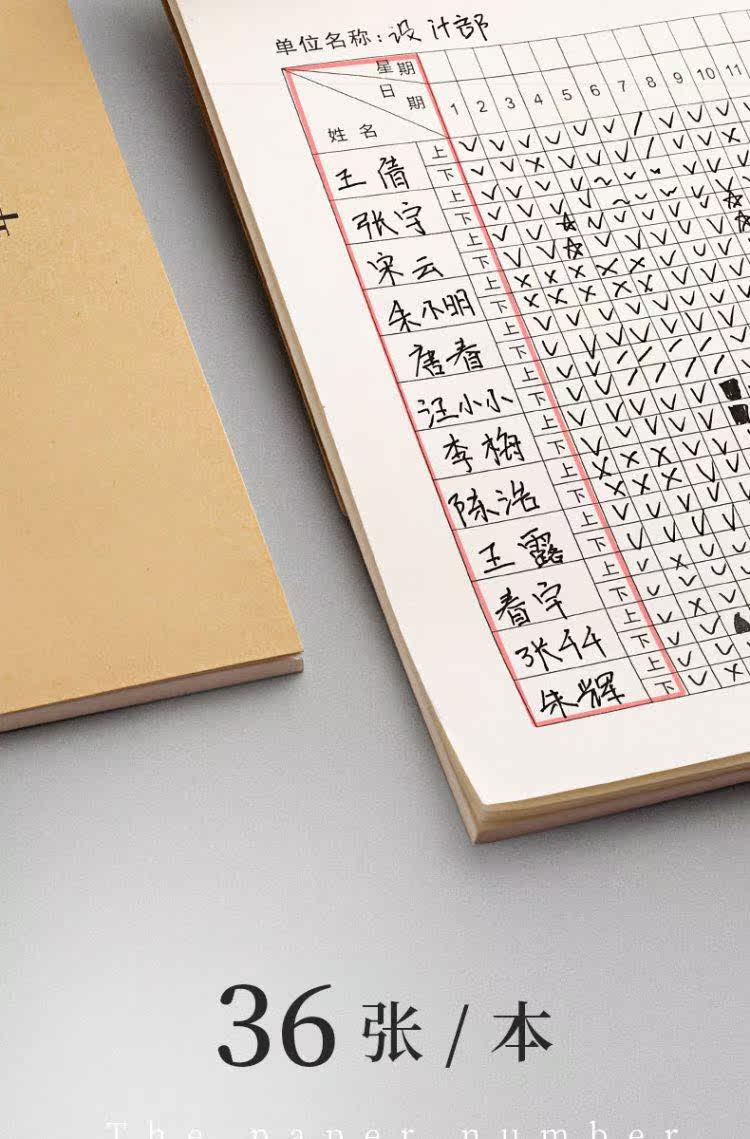 单位名称:设计部
星期
日期
姓名
1 2 3 4 5 6 7 8 9 10 11
王倩 上 下
张宇 上 下
宋云 上 下
朱小明 上 下
唐春 上 下
汪小小 上 下
李梅 上 下
陈浩 上 下
王露 上 下
春宇 上 下
张千千 上 下
朱辉 上 下
36张/本
The paper number